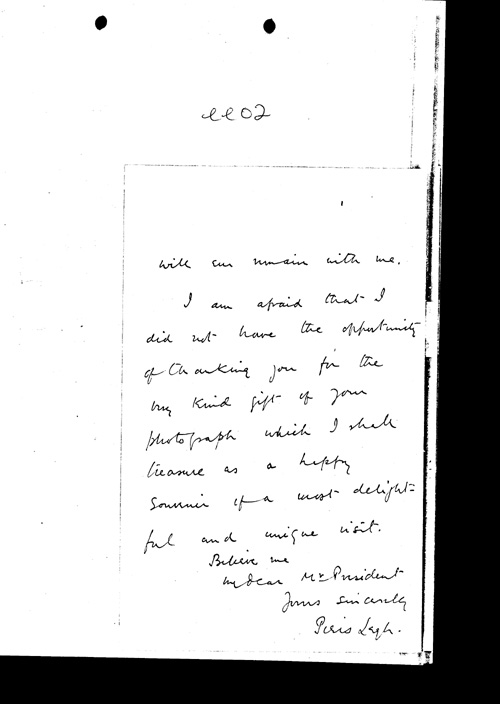 ee02
will ever remain with me.
I am afraid that I
did not have the opportunity
of thanking you for the
very kind gift of your
photograph which I shall
treasure as a happy
Souvenir of a most delight=
ful and unique visit.
Believe me
my dear Mr President
Yours sincerely
Piers Legh.